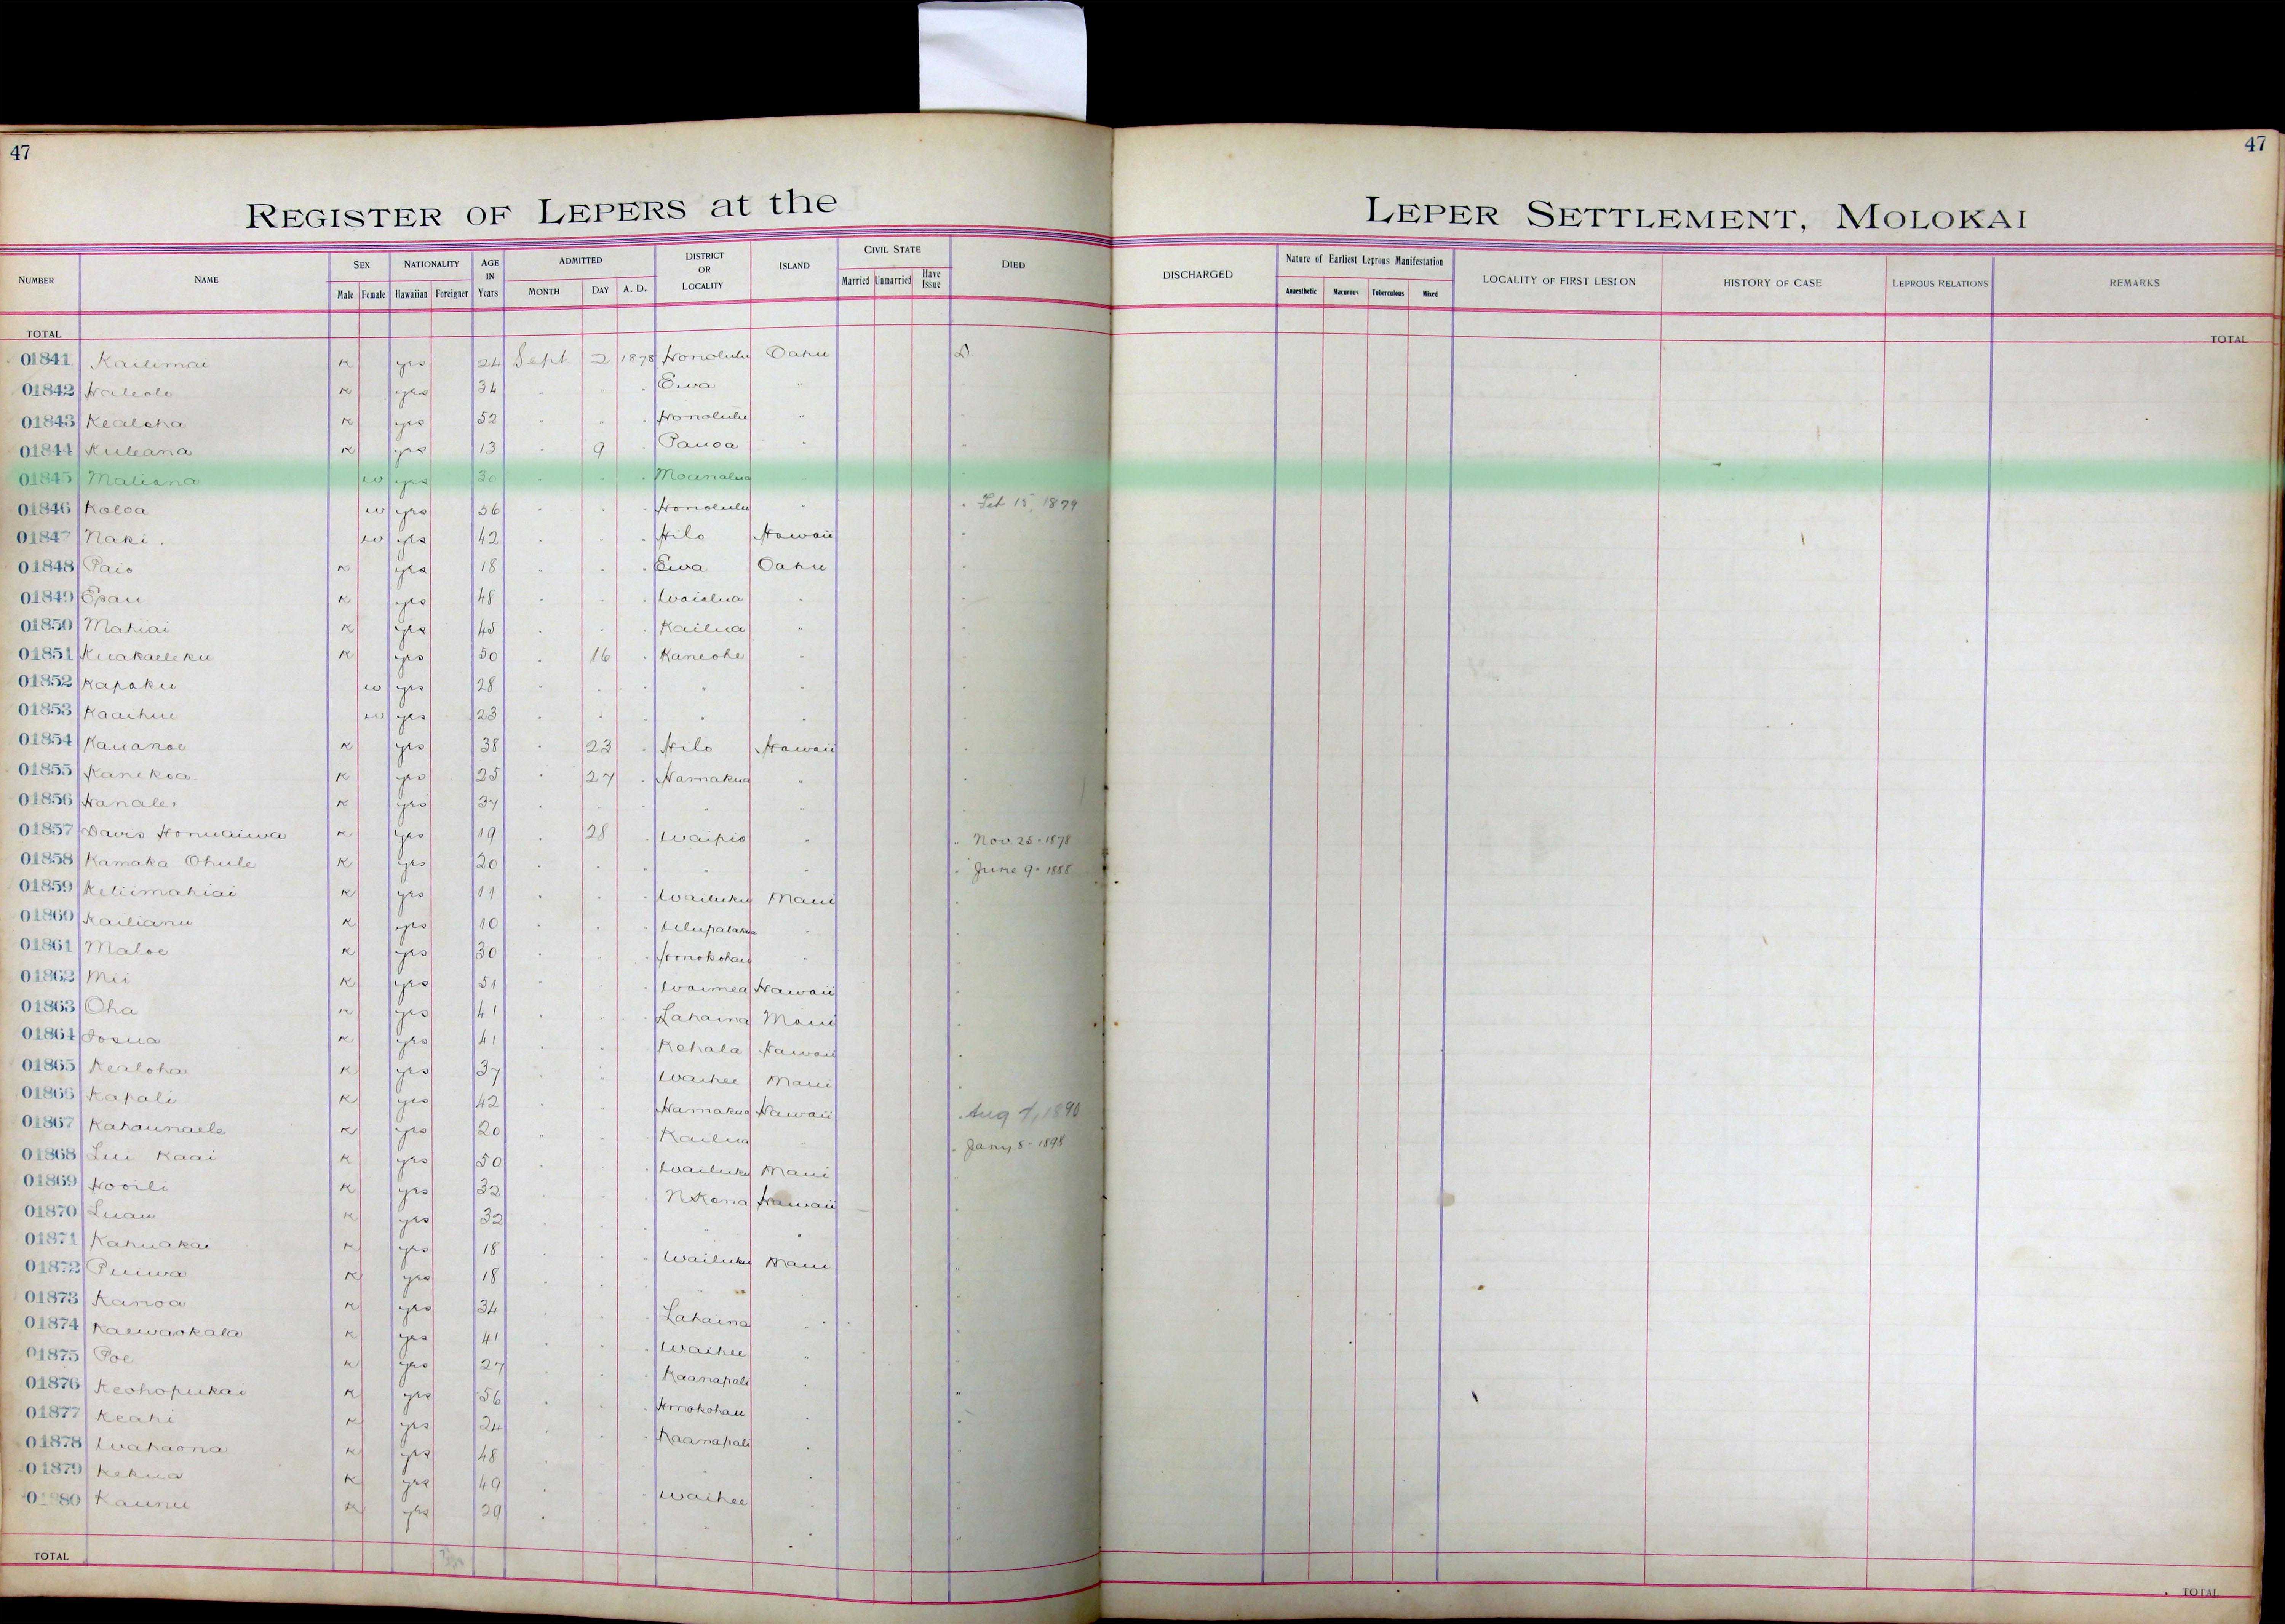 47
47
REGISTER OF LEPERS at the
LEPER SETTLEMENT, MOLOKAI
NUMBER NAME SEX Male Female NATIONALITY Hawaiian Foreigner AGE IN Years ADMITTED MONTH DAY A. D. DISTRICT OR LOCALITY ISLAND CIVIL STATE Married Unmarried Have Issue DIED
DISCHARGED Nature of Earliest Leprous Manifestation Anaesthetic Macurous Tuberculous Mixed LOCALITY OF FIRST LESION HISTORY OF CASE LEPROUS RELATIONS REMARKS
TOTAL TOTAL
01841 Kailimai K yes 24 Sept 2 1878 Honolulu Oahu D
01842 Haleolo K yes 34 " " " Ewa "
01843 Kealoha K yes 52 " " " Honolulu "
01844 Kuleana K yes 13 " 9 " Pauoa "
01845 Maliana w yes 30 " " " Moanalua
01846 Koloa w yes 56 " " " Honolulu " " Feb 15, 1879
01847 Naki w yes 42 " " " Hilo Hawaii "
01848 Paio K yes 18 " " " Ewa Oahu "
01849 Epau K yes 48 " " " Waialua " "
01850 Mahiai K yes 45 " " " Kailua " "
01851 Kuakaeleku K yes 50 " 16 " Kaneohe " "
01852 Kapoku w yes 28 " " " " " "
01853 Kaaihue w yes 23 " " " " " "
01854 Kauanoe K yes 38 " 23 " Hilo Hawaii "
01855 Kanekoa K yes 25 " 27 " Hamakua " "
01856 Hanalei K yes 37 " " " " " "
01857 Davis Honuaiwa K yes 19 " 28 " Waipio " " Nov 25 - 1878
01858 Kamaka Ohule K yes 20 " " " " " " June 9 - 1888
01859 Keliimahiai K yes 11 " " " Wailuku Maui "
01860 Kailianu K yes 10 " " " Ulupalakua " "
01861 Maloe K yes 30 " " " Honokohau " "
01862 Mii K yes 51 " " Waimea Hawaii "
01863 Oha K yes 41 " " Lahaina Maui "
01864 Iosua K yes 41 " " " Kohala Hawaii "
01865 Kealoha K yes 37 " " " Waihee Maui "
01866 Kapali K yes 42 " " " Hamakua Hawaii " Aug 7, 1890
01867 Kahaunaele K yes 20 " " " Kailua " Jany 8 - 1898
01868 Lui Kaai K yes 50 " " " Wailuku Maui "
01869 Hooili K yes 32 " " " N Kona Hawaii "
01870 Luau K yes 32 " " " " "
01871 Kahuakai K yes 18 " " " Wailuku Maui "
01872 Puiwa K yes 18 " " " "
01873 Kanoa K yes 34 " " " Lahaina " "
01874 Kaewaokala K yes 41 " " " Waihee " "
01875 Poe K yes 27 " " " Kaanapali " "
01876 Keohopukai K yes 56 " " " Honokohau " "
01877 Keahi K yes 24 " " " Kaanapali " "
01878 Wahaona K yes 48 " " " " "
01879 Kekua K yes 49 " " " Waihee " "
01880 Kaunu K yes 29 " " " "
TOTAL TOTAL